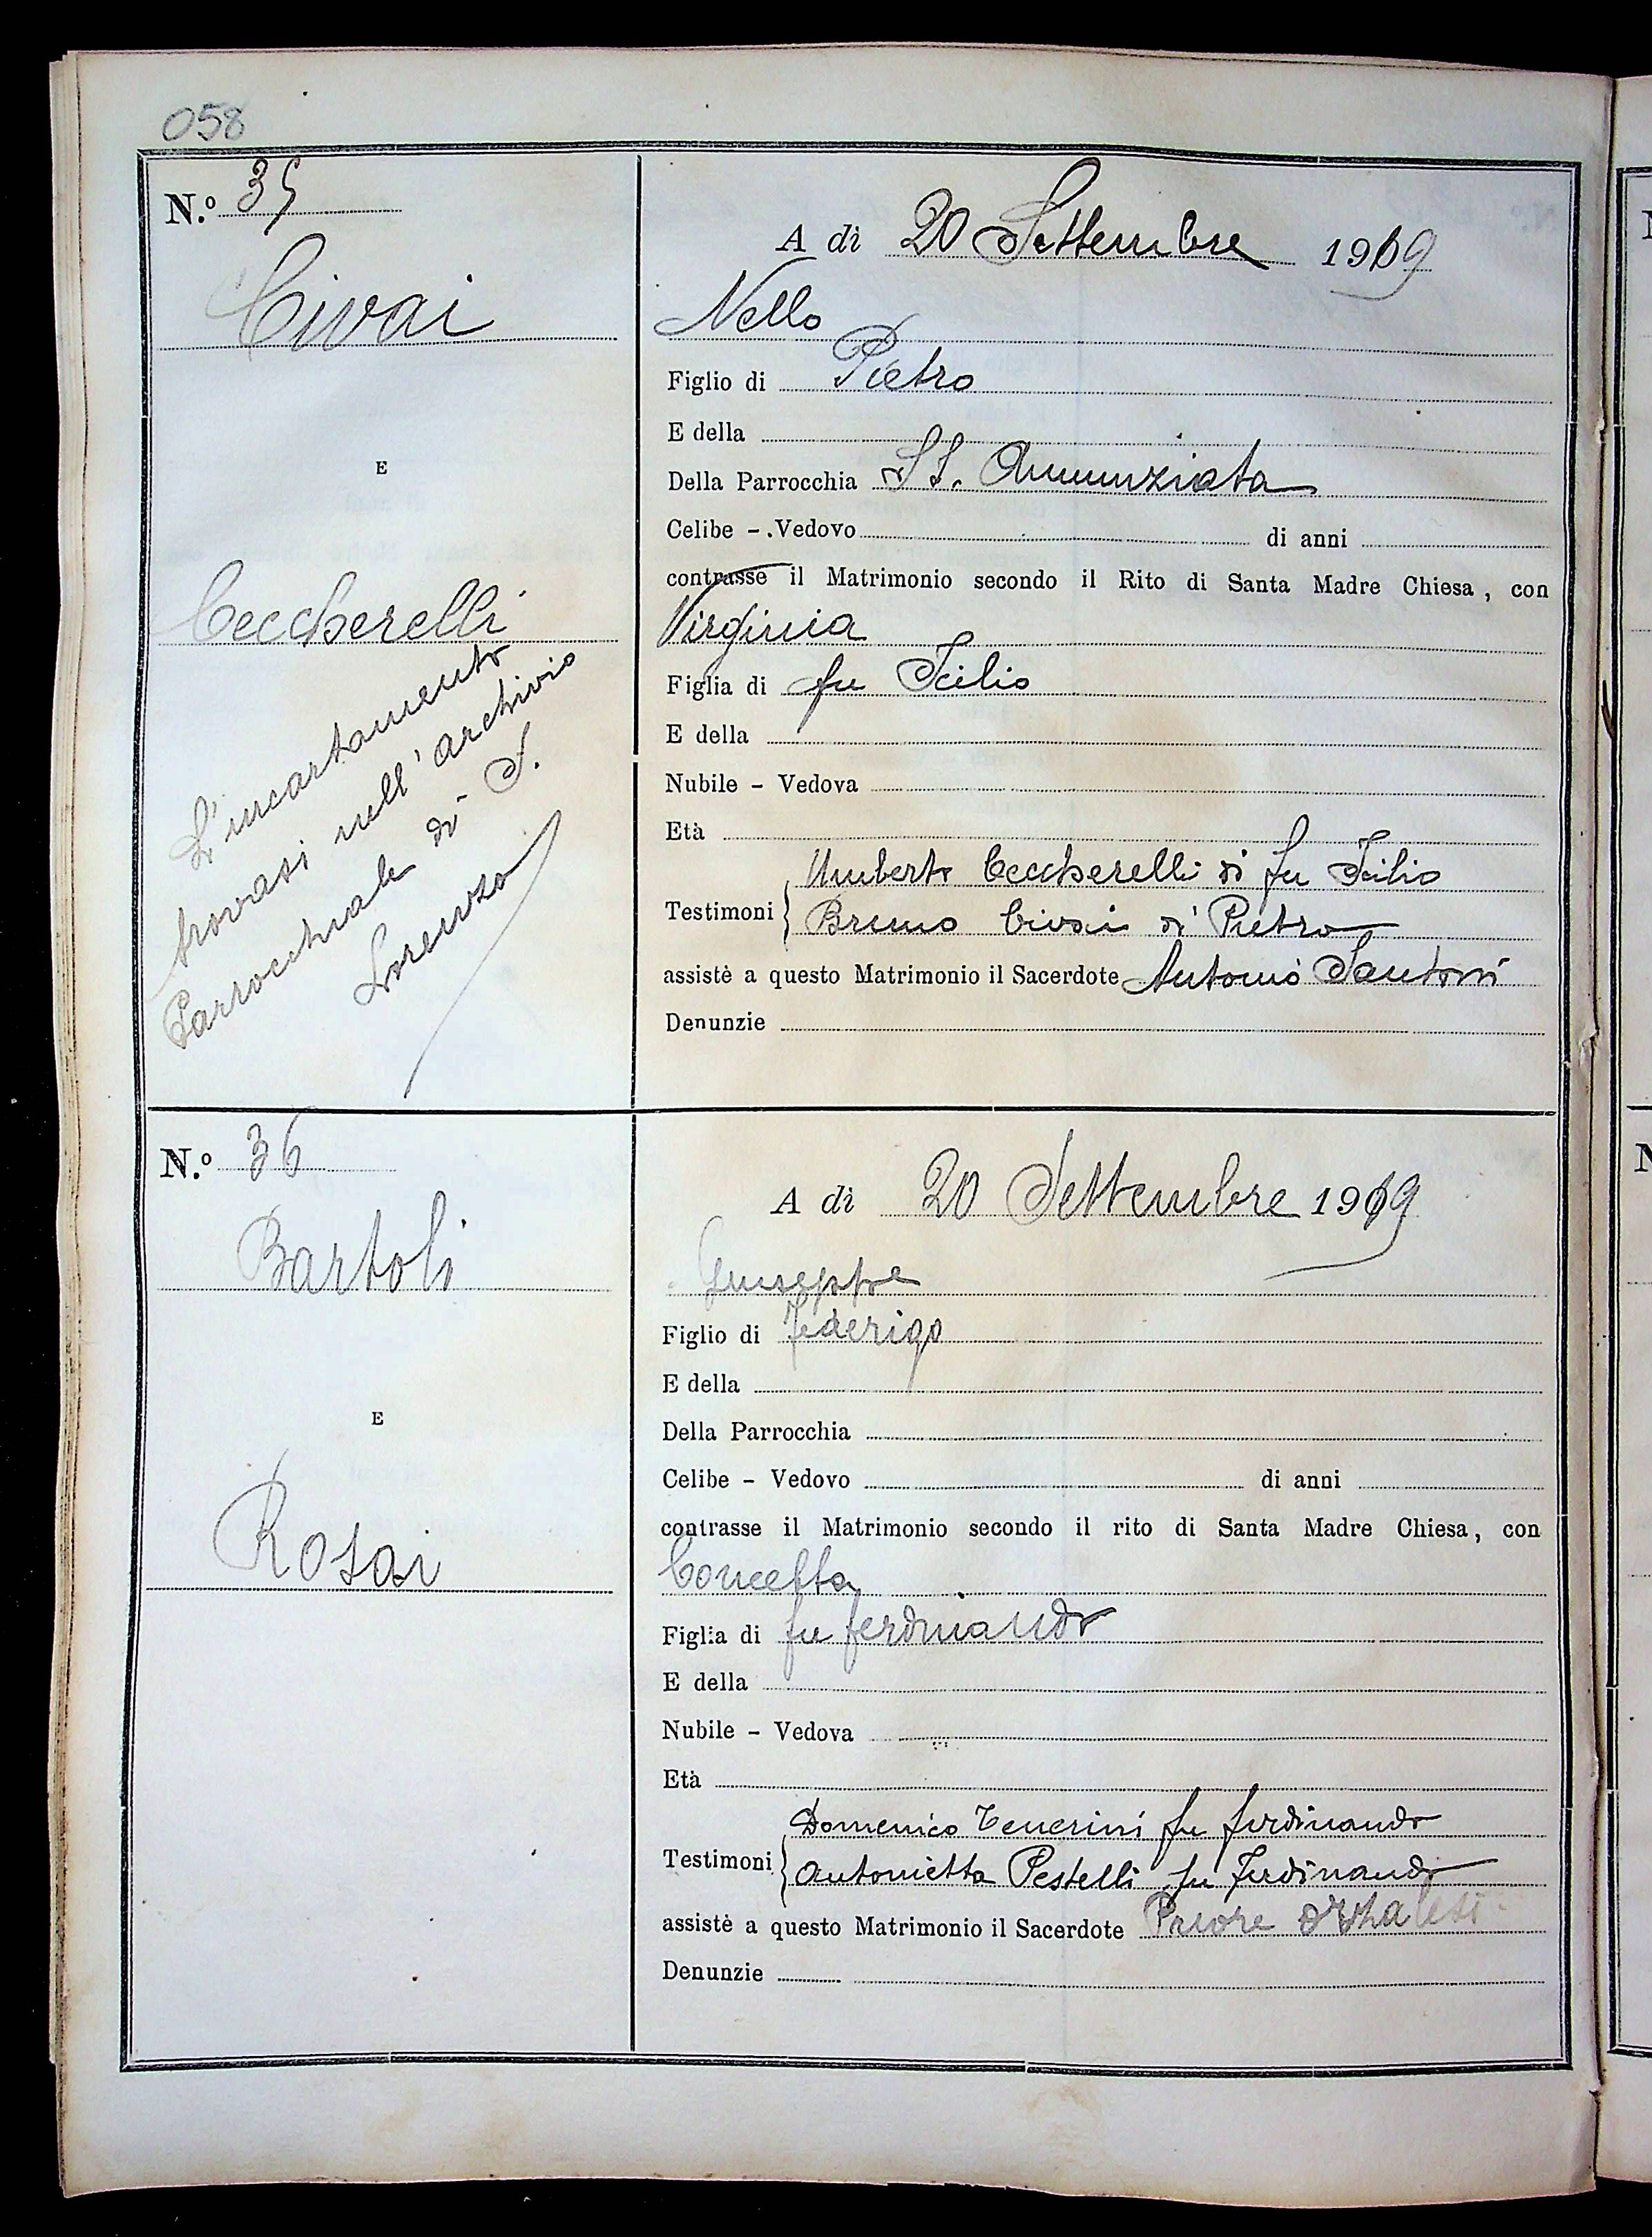 058
N.º 35
Civai
E
Ceccherelli
L'incartamento
trovasi nell' archivio
Parrocchiale di S.
Lorenzo
A dì 20 Settembre 1919
Nello
Figlio di Pietro
E della
Della Parrocchia SS. Annunziata
Celibe - Vedovo di anni
contrasse il Matrimonio secondo il Rito di Santa Madre Chiesa, con
Virginia
Figlia di fu Icilio
E della
Nubile - Vedova
Età
Umberto Ceccherelli di fu Icilio
Testimoni
Bruno Civai di Pietro
assistè a questo Matrimonio il Sacerdote Antonio Santoni
Denunzie
N.º 36
Bartoli
E
Rosai
A dì 20 Settembre 1919
Giuseppe
Figlio di Federigo
E della
Della Parrocchia
Celibe - Vedovo di anni
contrasse il Matrimonio secondo il rito di Santa Madre Chiesa, con
Concetta
Figlia di fu Ferdinando
E della
Nubile - Vedova
Età
Domenico Tenerini fu Ferdinando
Testimoni
Antonietta Pestelli fu Ferdinando
assistè a questo Matrimonio il Sacerdote Priore
Denunzie